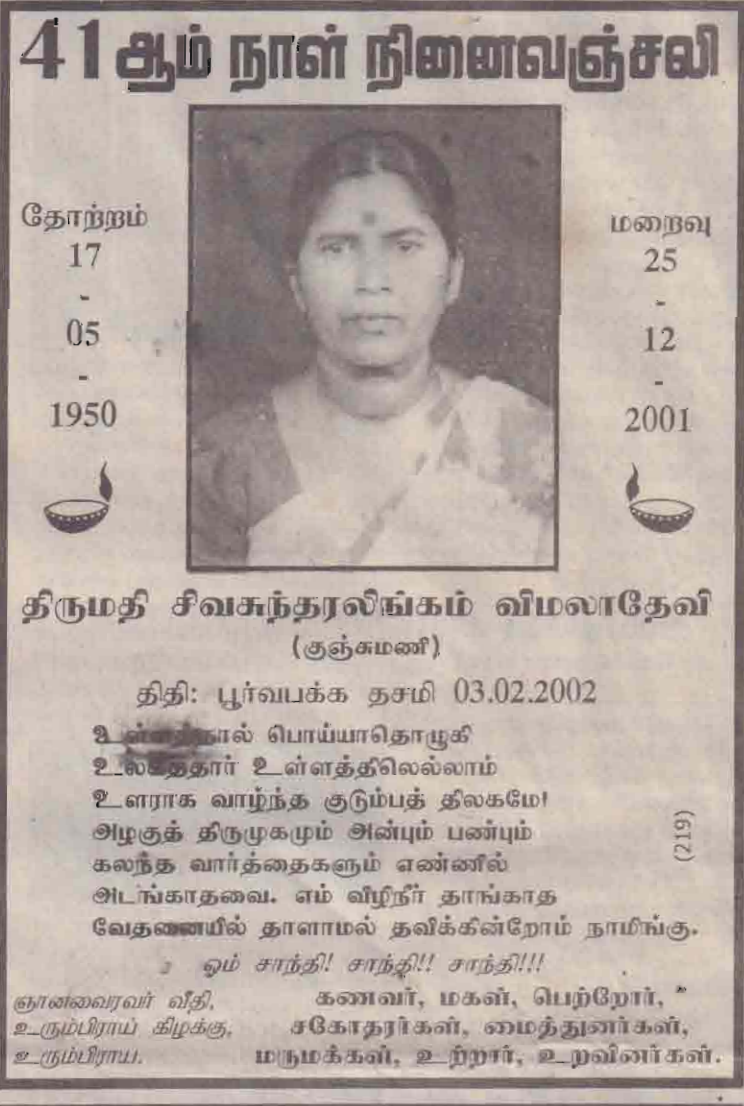 41ஆம் நாள் நினைவஞ்சலி
தோற்றம்
17
-
05
-
1950
மறைவு
25
-
12
-
2001
திருமதி சிவசுந்தரலிங்கம் விமலாதேவி
(குஞ்சுமணி)
திதி: பூர்வபக்க தசமி 03.02.2002
உள்ளத்தால் பொய்யாதொழுகி
உலகத்தார் உள்ளத்திலெல்லாம்
உளராக வாழ்ந்த குடும்பத் திலகமே!
அழகுத் திருமுகமும் அன்பும் பண்பும்
கலந்த வார்த்தைகளும் எண்ணில்
அடங்காதவை. எம் விழிநீர் தாங்காத
வேதனையில் தாளாமல் தவிக்கின்றோம் நாமிங்கு.
(219)
ஓம் சாந்தி! சாந்தி!! சாந்தி!!!
ஞானவைரவர் வீதி,
உரும்பிராய் கிழக்கு,
உரும்பிராய.
கணவர், மகள், பெற்றோர்,
சகோதரர்கள், மைத்துனர்கள்,
மருமக்கள், உற்றார், உறவினர்கள்.